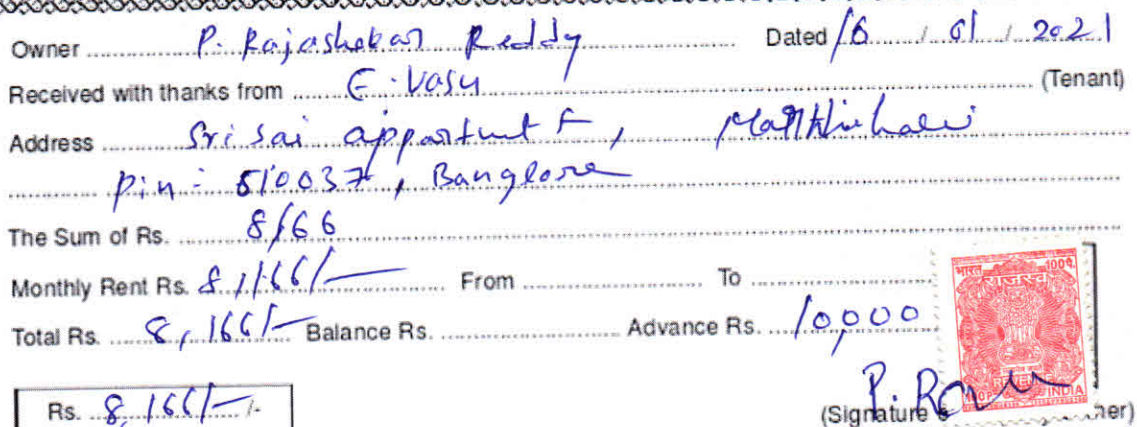 Owner P. Rajashekar Reddy Dated 16 / 01 / 2021
Received with thanks from E. Vasu (Tenant)
Address Sri Sai appartment F,
Pin: 510037, Banglore
The Sum of Rs. 8166
Monthly Rent Rs. 8,166/- From To
Total Rs. 8,166/- Balance Rs. Advance Rs. 10,000
भारत 100प.
राजस्व
REVENUE
INDIA
Rs. 8,166/- /-
(Signature &